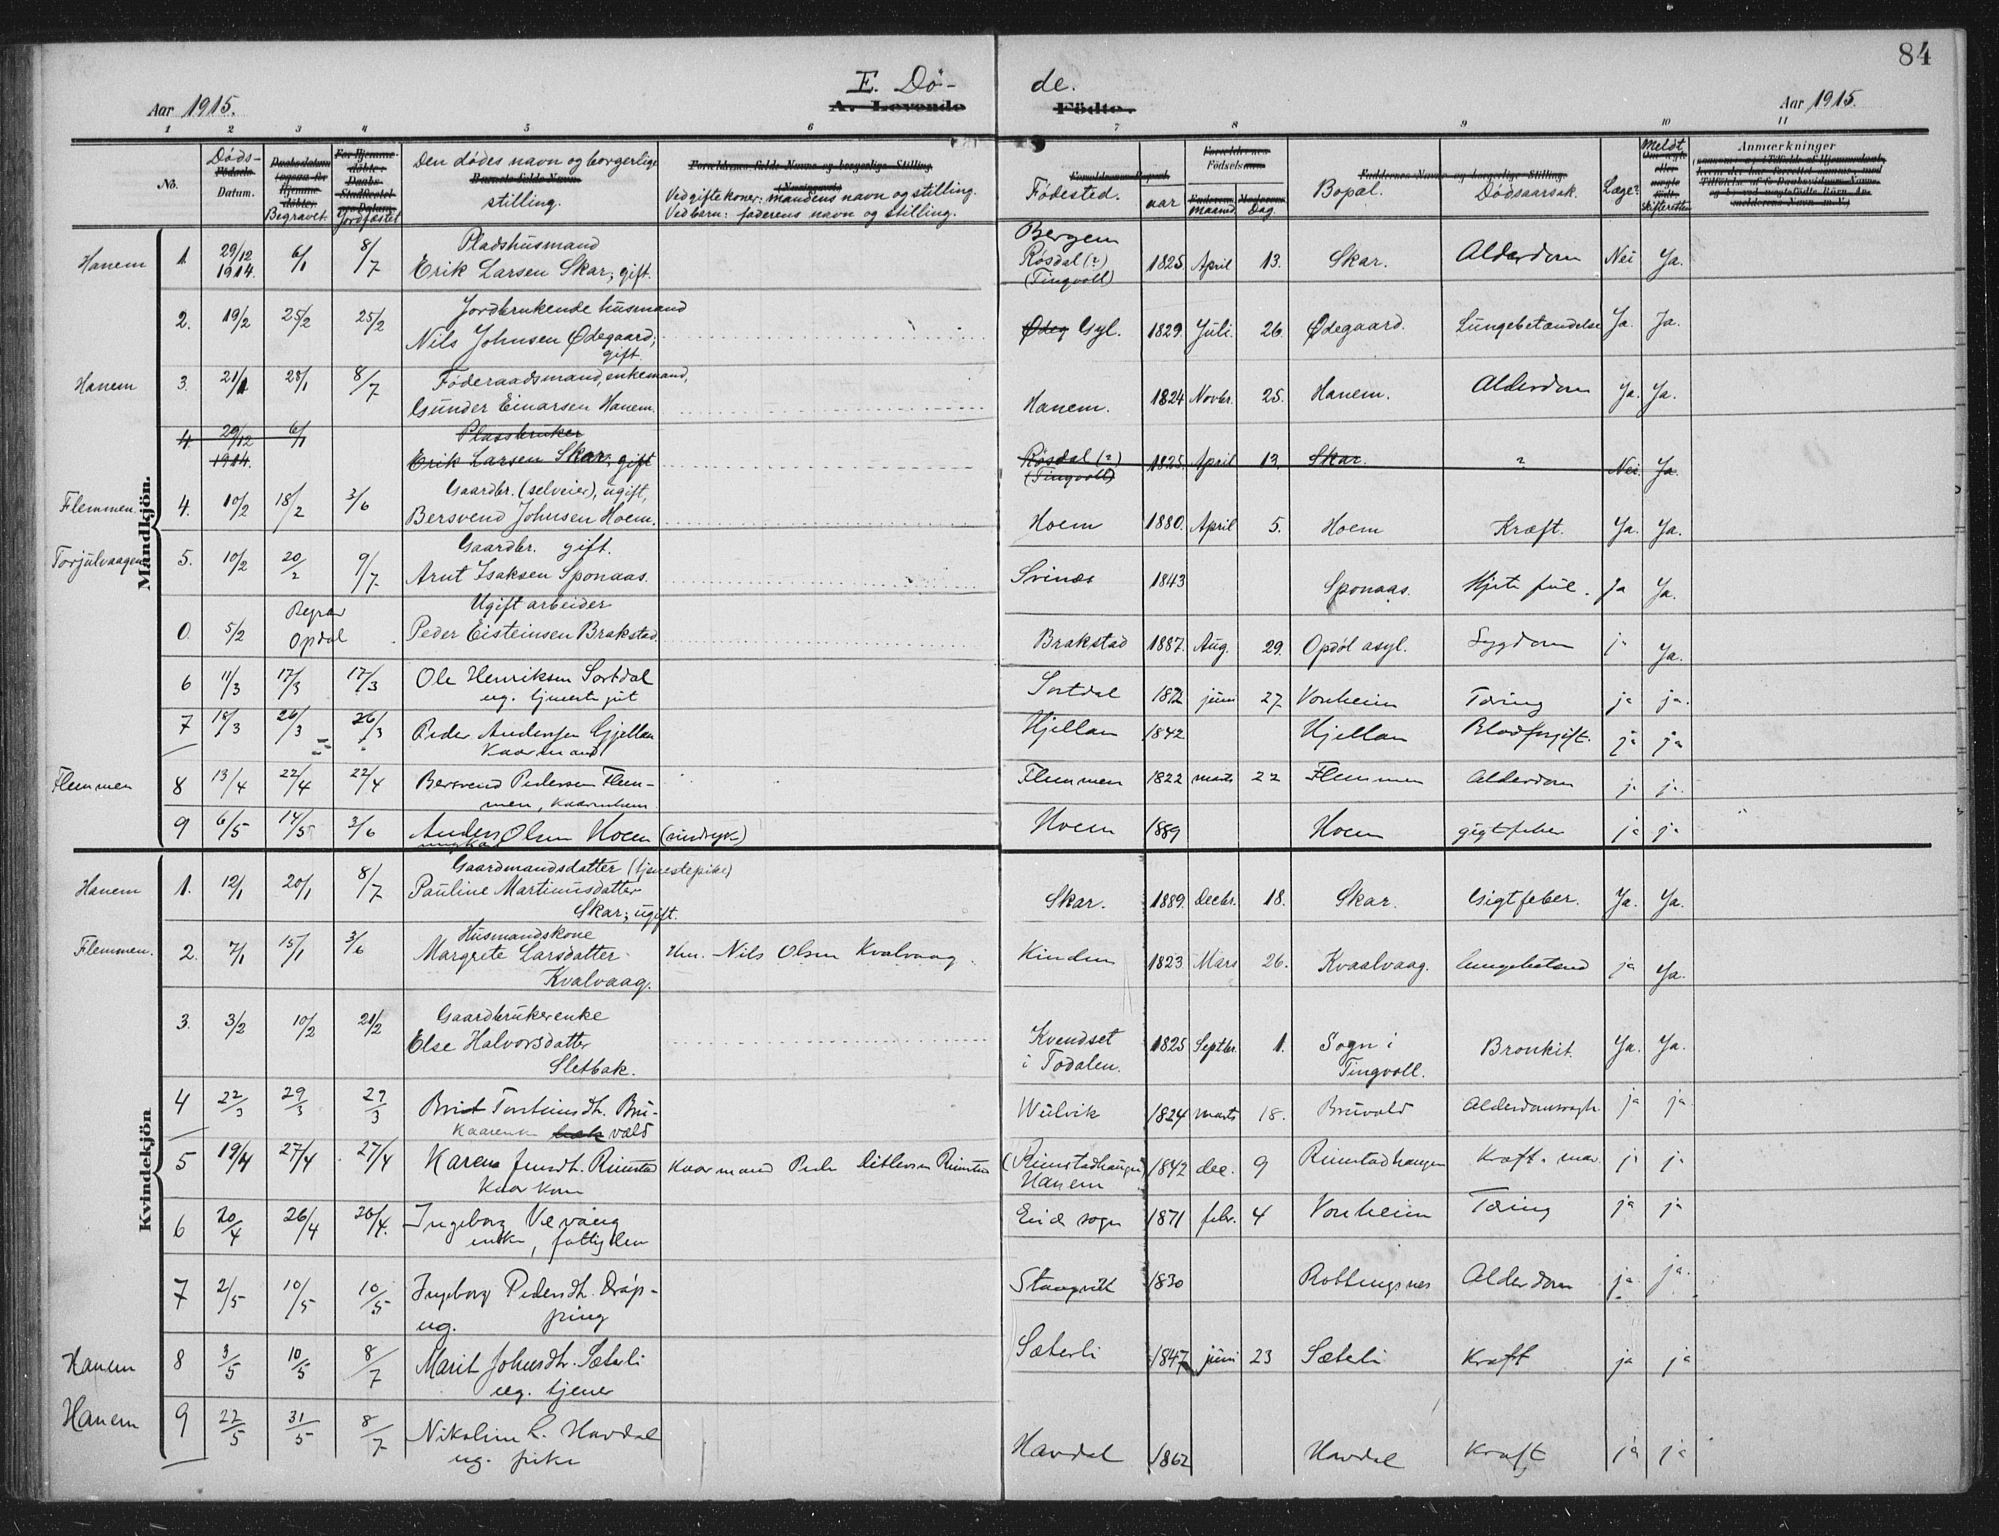 84
E. Dø- de.
Aar 1915.
A. Levende Födte.
Aar 1915.
1 2 3 4 5 6 7 8 9 10 11
No.
Døds-
Datum.
Begravet.
Jordfæstet
Den dødes navn og borgerlige
Barnets fulde Navn.
stilling.
Forældrenes fulde Navne og borgerlige Stilling
Ved gifte koner: mandens navn og stilling.
Ved barn: faderens navn og stilling.
Fødested.
Forældrenes
Födselsaar.
aar maaned Dag.
Bopæl.
Dødsaarsak.
Læge?
Meldt
skifteretten
Anmærkninger
Mandkjön.
Hanem 1. 29/12 1914. 6/1 8/7 Pladshusmand
Erik Larsen Skar; gift. Bergem Røsdal (?) (Tingvoll) 1825 April 13. Skar. Alderdom Nei Ja.
2. 19/2 25/2 25/2 Jordbrukende husmand
Nils Johnsen Ødegaard; gift. Ødeg Gyl. 1829. Juli 26. Ødegaard. Lungebetændelse Ja. Ja.
Hanem 3. 21/1 28/1 8/7 Føderaadsmand, enkemand,
Gunder Einarsen Hanem. Hanem. 1824 Novbr. 25. Hanem. Alderdom Ja. Ja.
4. 29/12 1914. 6/1 Plassbruker
Erik Larsen Skar; gift Røsdal (?) (Tingvoll) 1825. April 13. Skar. ? Nei Ja.
Flemmen. 4. 10/2 18/2 3/6 Gaardbr. (selveier), ugift,
Bersvend Johnsen Hoem. Hoem 1880. April 5. Hoem Kræft. Ja. Ja.
Torjulvaagen 5. 10/2 20/2 9/7 Gaardbr. gift.
Arnt Isaksen Sponaas. Svinæs 1843 Sponaas. Ja Ja.
0. 5/2 Opdal Ugift arbeider
Peder Eisteinsen Brakstad Brakstad 1887. Aug. 29. Opdöl asyl. Sygdom j Ja.
6 11/3 17/3 17/3 Ole Henriksen Sortdal
ug. Sortdal 1872 juni 27 Vonheim Tæring ja ja.
7 18/3 26/3 26/3 Peder Andersen Gjellan
Kaarmand Hjellan 1842 Hjellan Blodforgift. ja ja
Flemmen 8 13/4 22/4 22/4 Bersvend Pedersen Flem-
men, Flemmen 1822 marts 22 Flemmen Alderdom ja ja.
9 6/5 14/5 3/6 Anders Olsen Hoem
ungkar Hoem 1889 Hoem gigtfeber ja ja
Kvindekjön
Hanem 1. 12/1 20/1 8/7 Gaardmandsdatter (tjenestepike)
Pauline Martinusdatter
Skar; ugift. Skar. 1889. Decbr. 18. Skar. Gigtfeber. Ja. Ja.
Flemmen. 2. 7/1 15/1 3/6 Husmandskone
Margrete Larsdatter
Kvalvaag. Hm. Nils Olsen Kvalvaag. Kinden 1823 Mars 26. Kvaalvaag. Lungebetænd ja Ja.
3. 3/2 10/2 21/2 Gaardbrukerenke
Else Halvorsdatter
Sletbak. Kvendset i Todalen. 1825 Septbr. 1. Sogn i Tingvoll. Bronkit. Ja. Ja.
4 22/3 29/3 29/3 Brit dtr. Bru-
vald Wulvik 1824 marts 18. Bruvald ja ja.
5 19/4 27/4 27/4 Karen Rimstad
Kaarmand Peder Ditlevsen Rimstad (Rimstadhaugen) Hanem 1842 dec. 9 Rimstadhaugen Kræft ja ja
6 20/4 26/4 26/4. Ingeborg Vevang
enke, fattiglem Eide sogn 1871 febr. 4 Vonheim Tæring ja ja
7 2/5 10/5 10/5 Ingeborg Pedersdt. Drøp-
ping
ug. Stangvik 1830 Rottingsnes Alderdom ja. ja.
Hanem 8 3/5 10/5 8/7 Marit Johnsdtr. Sæterli
ug. tjener Sæterli 1847 juni 23 Sæterli Kræft ja ja
Hanem 9 22/5 31/5 8/7 Nikoline L. Havdal
ug. pike Havdal 1862 Havdal Kræft ja ja